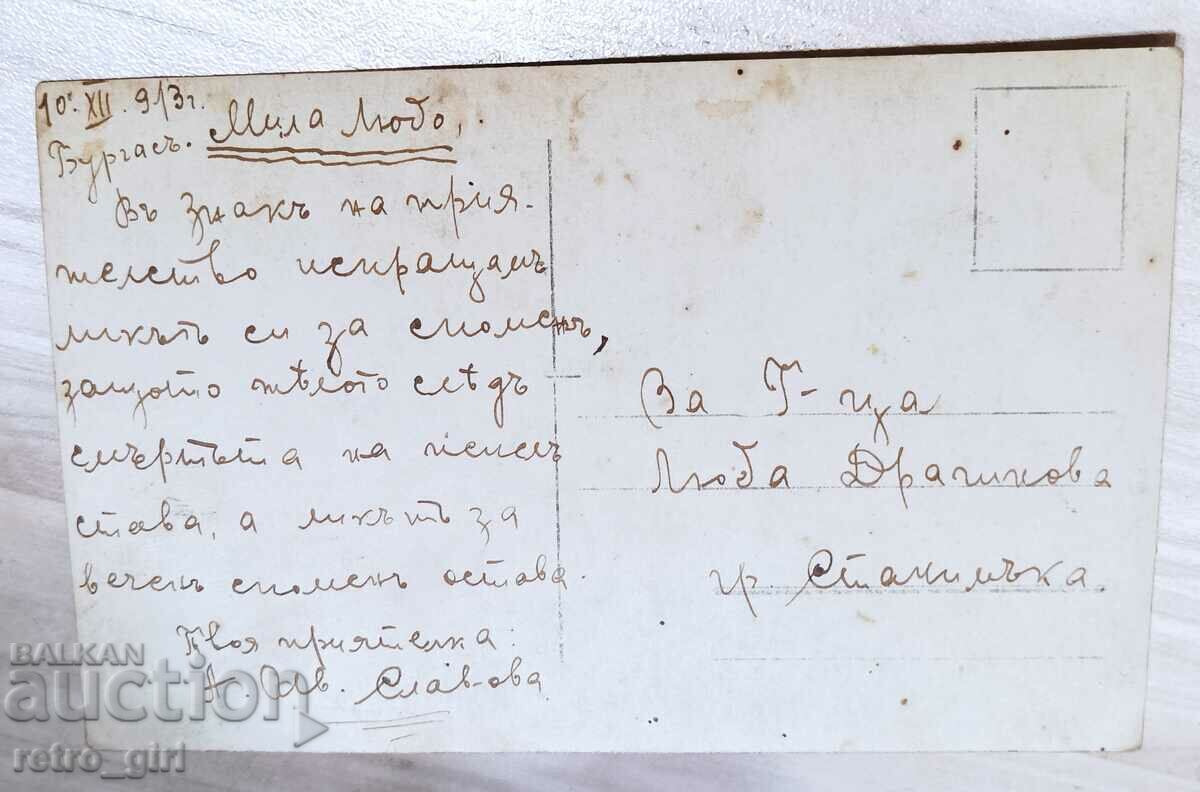 10. XII. 913 г.
Бургасъ.
Мила Любо,
Въ знакъ на прия-
телство испращамъ
ликътъ си за споменъ,
защото тѣлото слѣдъ
смъртьта на пепелъ
става, а ликътъ за
веченъ споменъ остава.
Твоя приятелка:
Ив. Славова
За Г-ца
Люба Драгинова
гр. Станимъка
BALKAN
auction
retro_girl